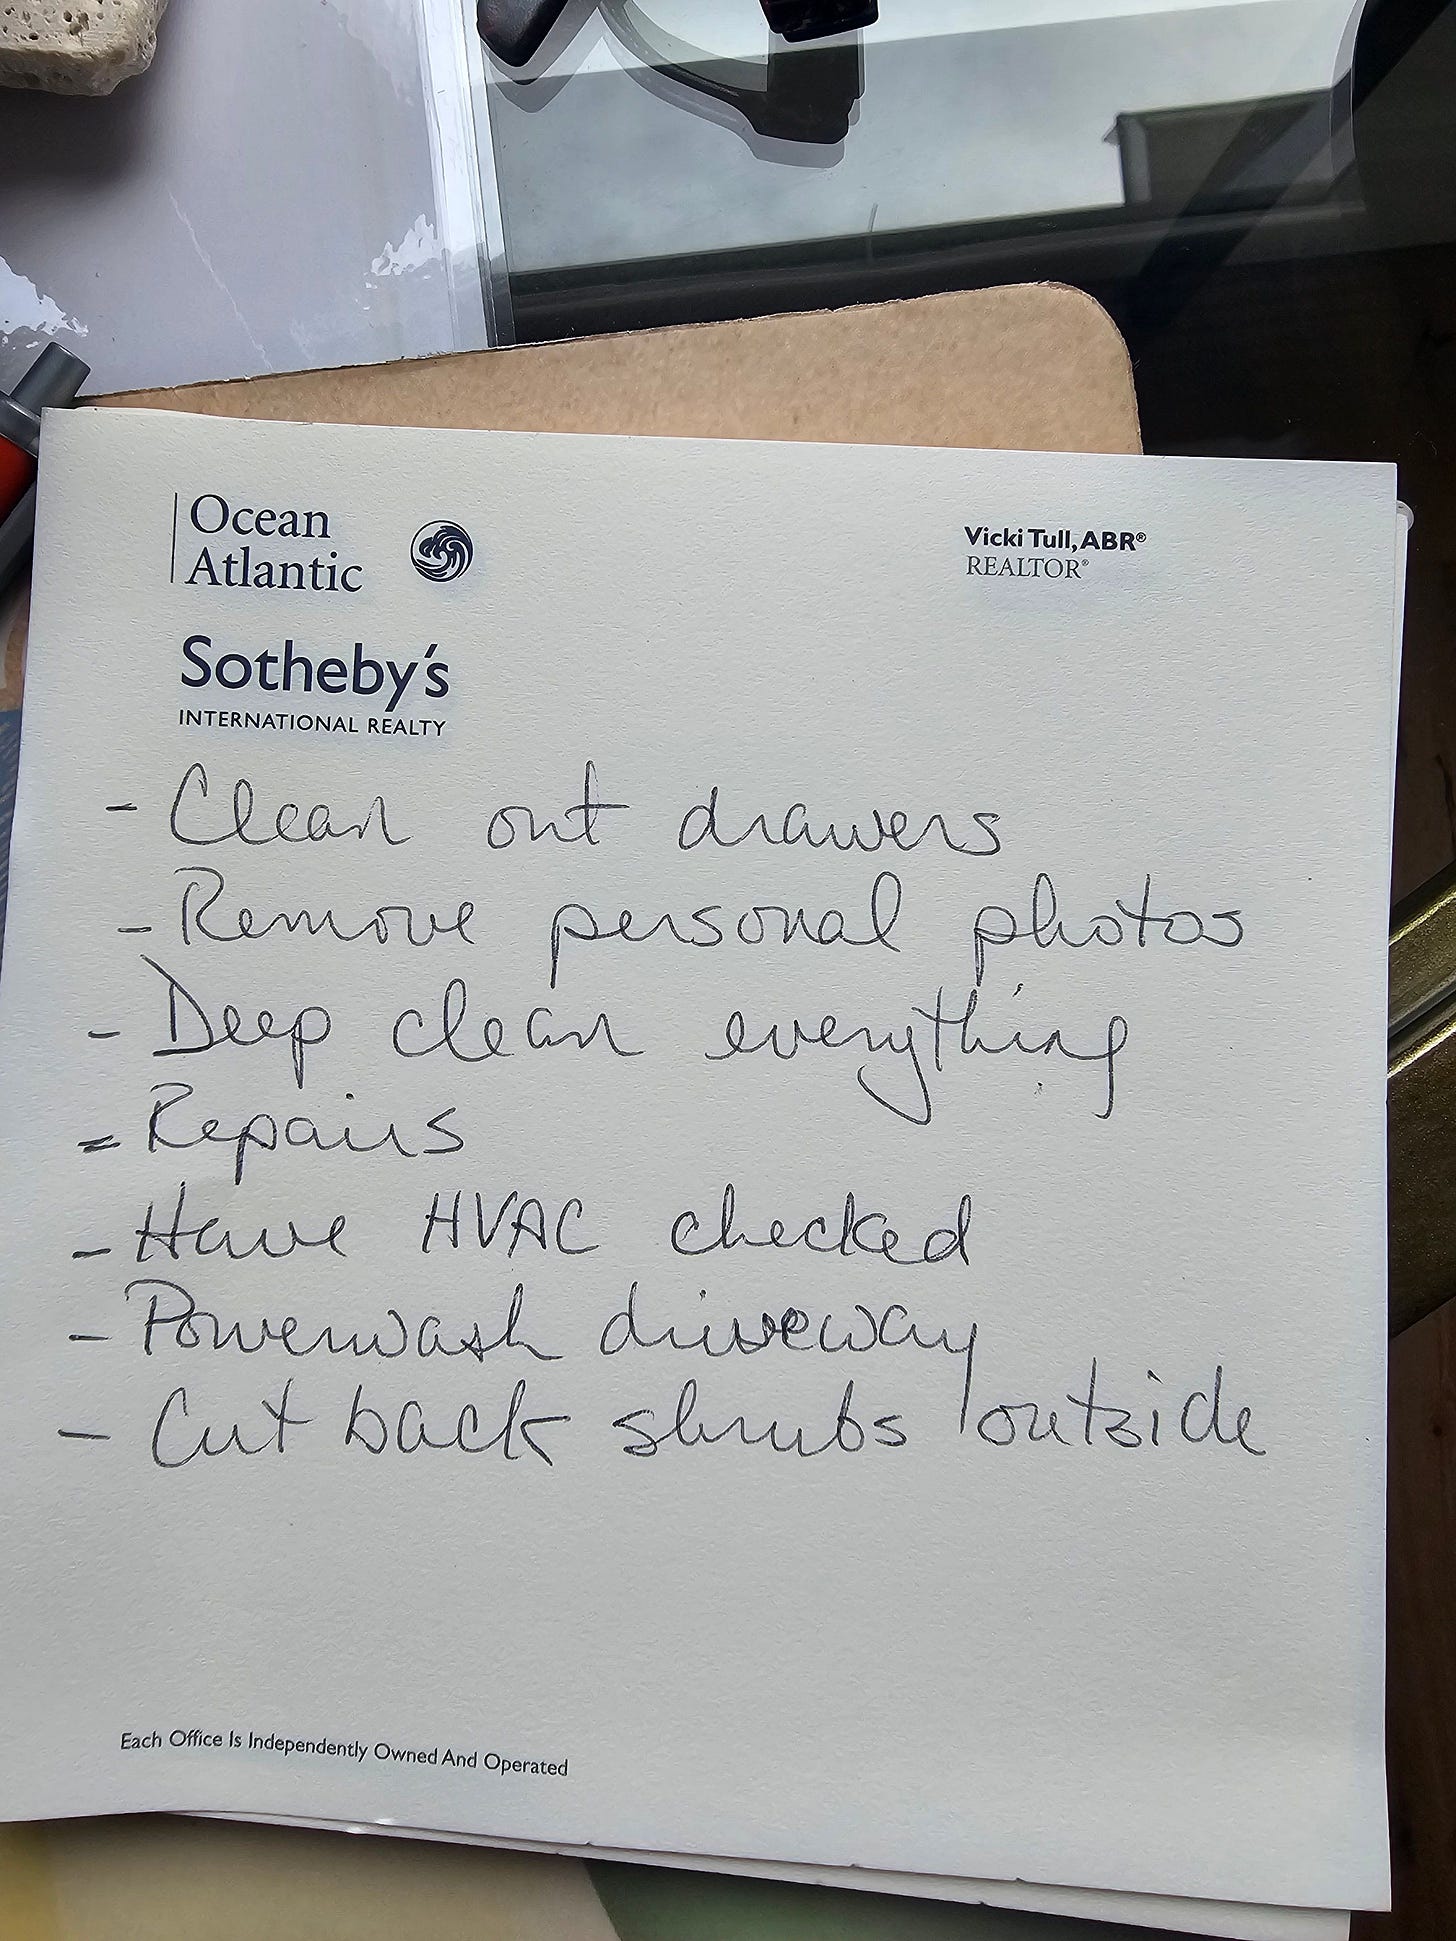 Ocean
Atlantic
Vicki Tull, ABR®
REALTOR®
Sotheby's
INTERNATIONAL REALTY
- Clean out drawers
- Remove personal photos
- Deep clean everything
- Repairs
- Have HVAC checked
- Powerwash driveway
- Cut back shrubs outside
Each Office Is Independently Owned And Operated